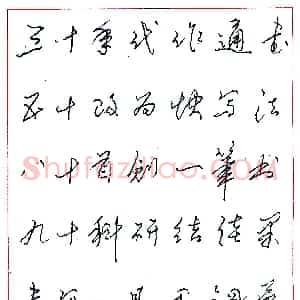 三十年代作通书
五十改为快写法
八十首创一笔书
九十科研结硕果
Shufaziliao.COM